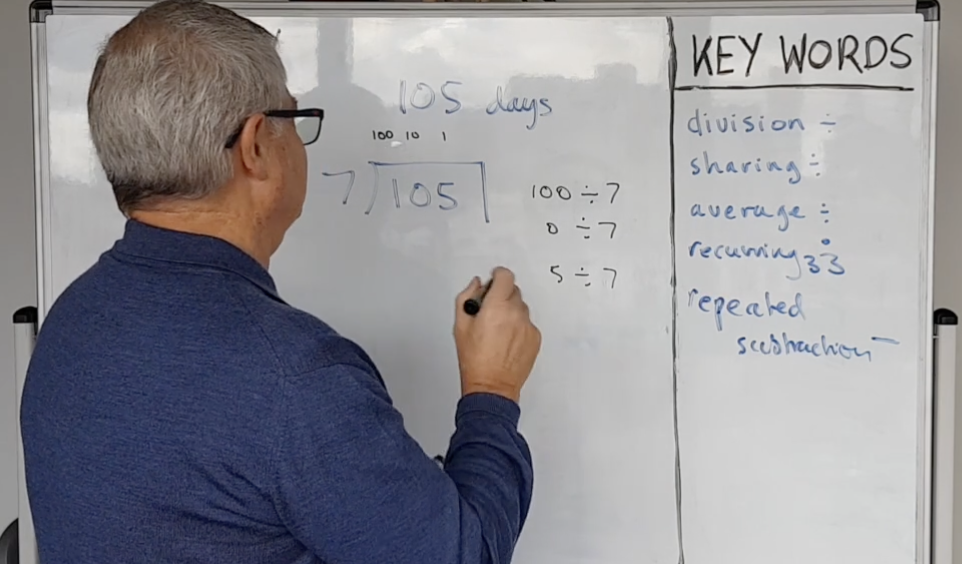 105 days
100 10 1
7 105
100 ÷ 7
0 ÷ 7
5 ÷ 7
KEY WORDS
division ÷
sharing ÷
average ÷
recurring 3 3̇
repeated
subtraction −